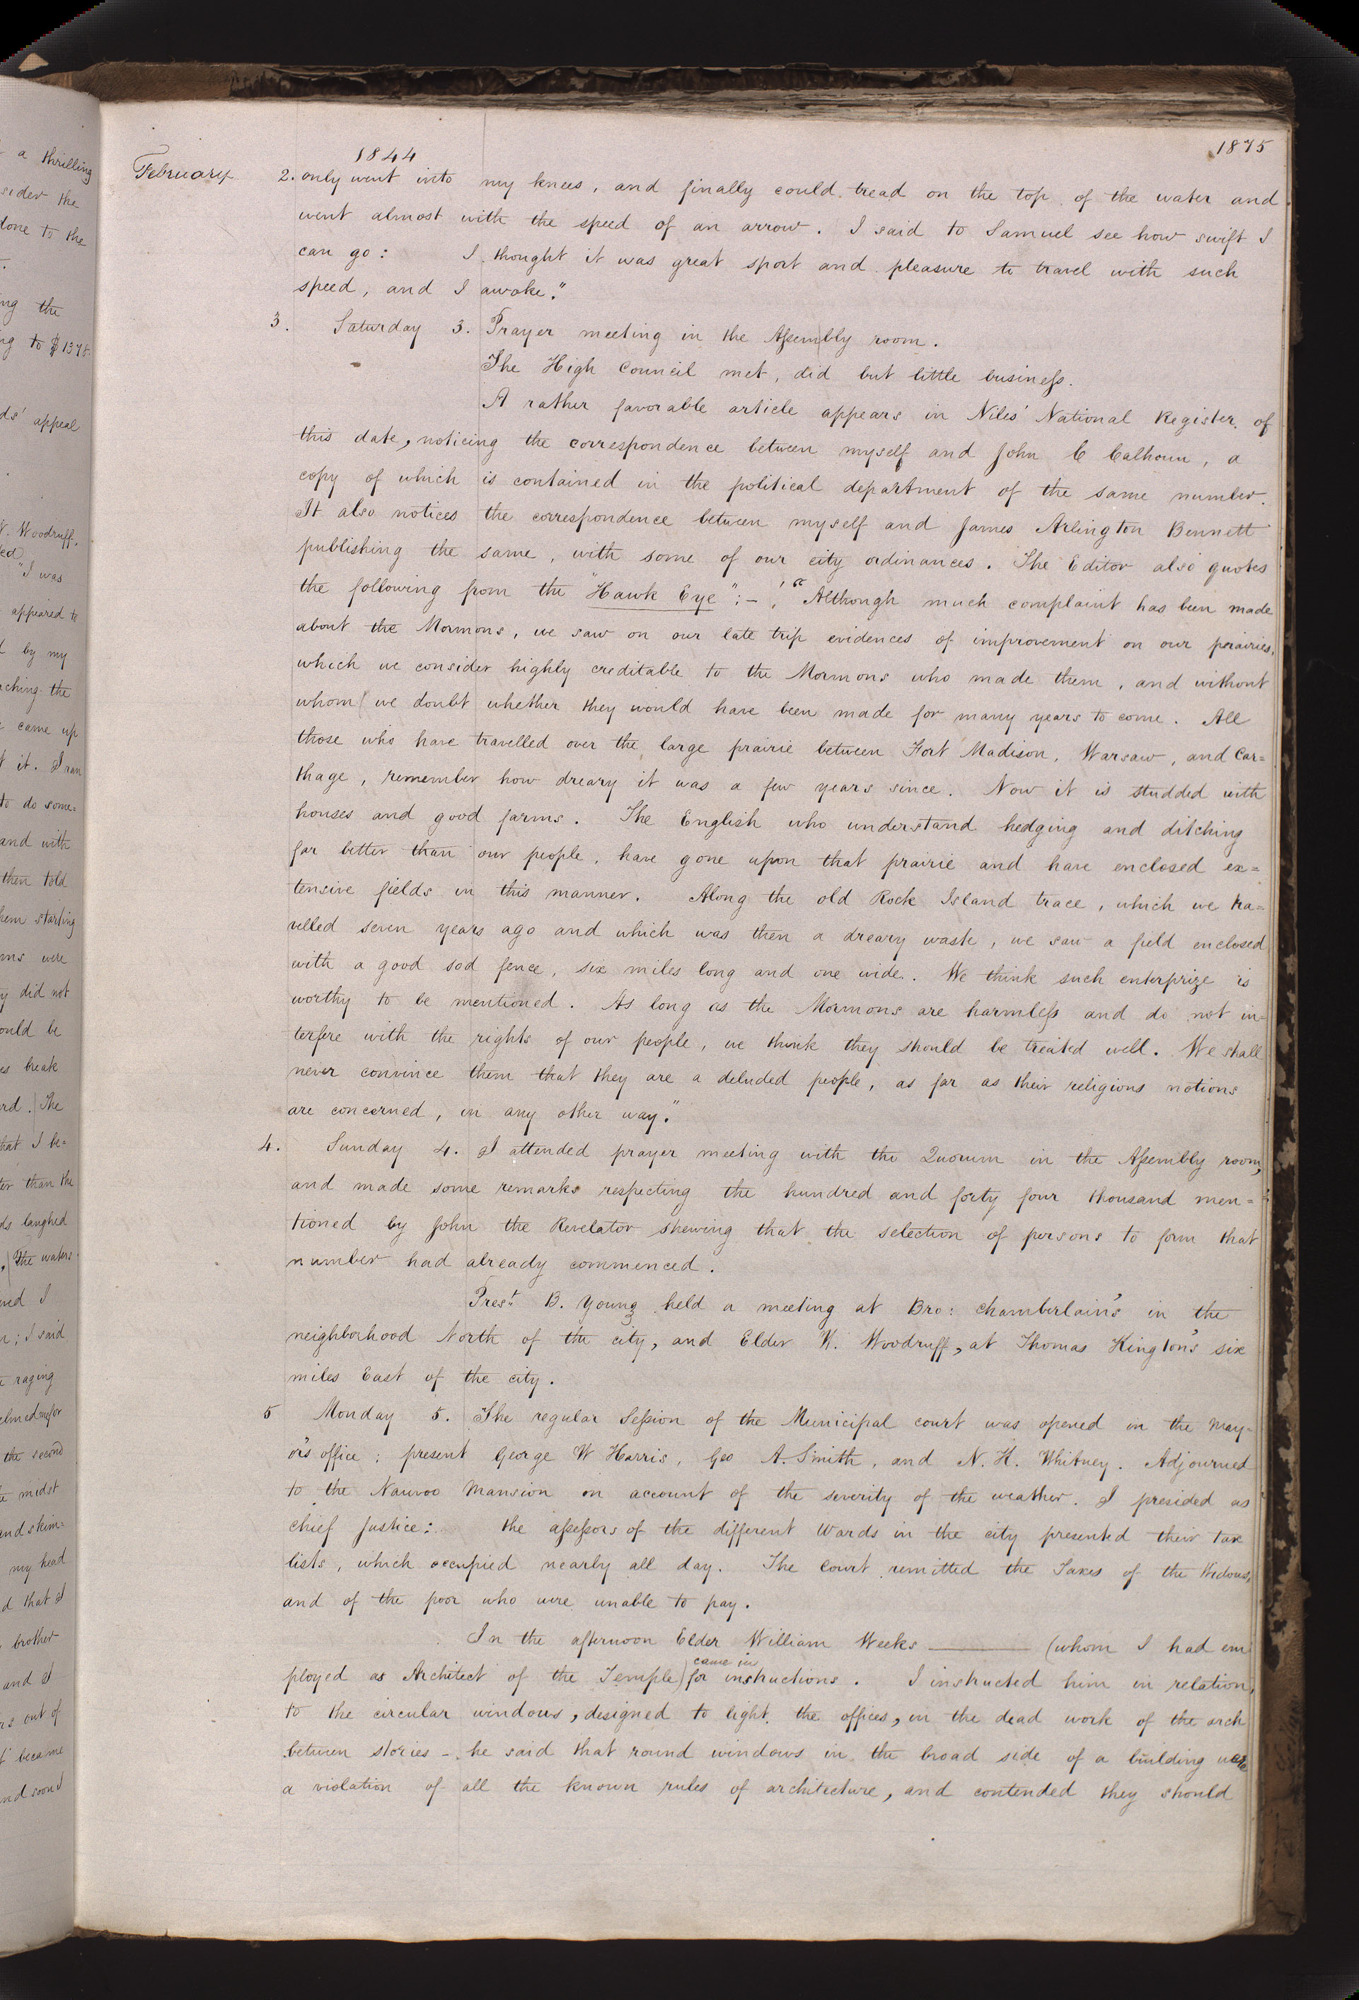 1844
1875
February 2. only went into my knees, and finally could tread on the top of the water and
went almost with the speed of an arrow. I said to Samuel see how swift I
can go: I thought it was great sport and pleasure to travel with such
speed, and I awoke."
3. Saturday 3. Prayer meeting in the Assembly room.
The High Council met, did but little business.
A rather favorable article appears in Niles' National Register, of
this date, noticing the correspondence between myself and John C Calhoun, a
copy of which is contained in the political department of the same number.
It also notices the correspondence between myself and James Arlington Bennett
publishing the same, with some of our city ordinances. The Editor also quotes
the following from the "Hawk Eye":— "Although much complaint has been made
about the Mormons, we saw on our late trip evidences of improvement on our prairies,
which we consider highly creditable to the Mormons who made them, and without
whom we doubt whether they would have been made for many years to come. All
those who have travelled over the large prairie between Fort Madison, Warsaw, and Car=
thage, remember how dreary it was a few years since. Now it is studded with
houses and good farms. The English who understand hedging and ditching
far better than our people, have gone upon that prairie and have enclosed ex=
tensive fields in this manner. Along the old Rock Island trace, which we tra=
velled seven years ago and which was then a dreary waste, we saw a field enclosed
with a good sod fence, six miles long and one wide. We think such enterprize is
worthy to be mentioned. As long as the Mormons are harmless and do not in-
terfere with the rights of our people, we think they should be treated well. We shall
never convince them that they are a deluded people, as far as their religious notions
are concerned, in any other way."
4. Sunday 4. I attended prayer meeting with the Quorum in the Assembly room,
and made some remarks respecting the hundred and forty four thousand men=
tioned by John the Revelator shewing that the selection of persons to form that
number had already commenced.
Prest. B. Young held a meeting at Bro: Chamberlain's in the
neighborhood North of the city, and Elder W. Woodruff, at Thomas Kington's six
miles East of the city.
5 Monday 5. The regular Session of the Municipal court was opened in the may-
or's office; present George W Harris, Geo A. Smith, and N. K. Whitney. Adjourned
to the Nauvoo Mansion on account of the severity of the weather. I presided as
chief Justice: the assessors of the different Wards in the city presented their tax
lists, which occupied nearly all day. The court remitted the Taxes of the Widows,
and of the poor who were unable to pay.
In the afternoon Elder William Weeks ——— (whom I had em
ployed as Architect of the Temple) came in for instructions. I instructed him in relation,
to the circular windows, designed to light the offices, in the dead work of the arch
between stories — he said that round windows in the broad side of a building were
a violation of all the known rules of architecture, and contended they should